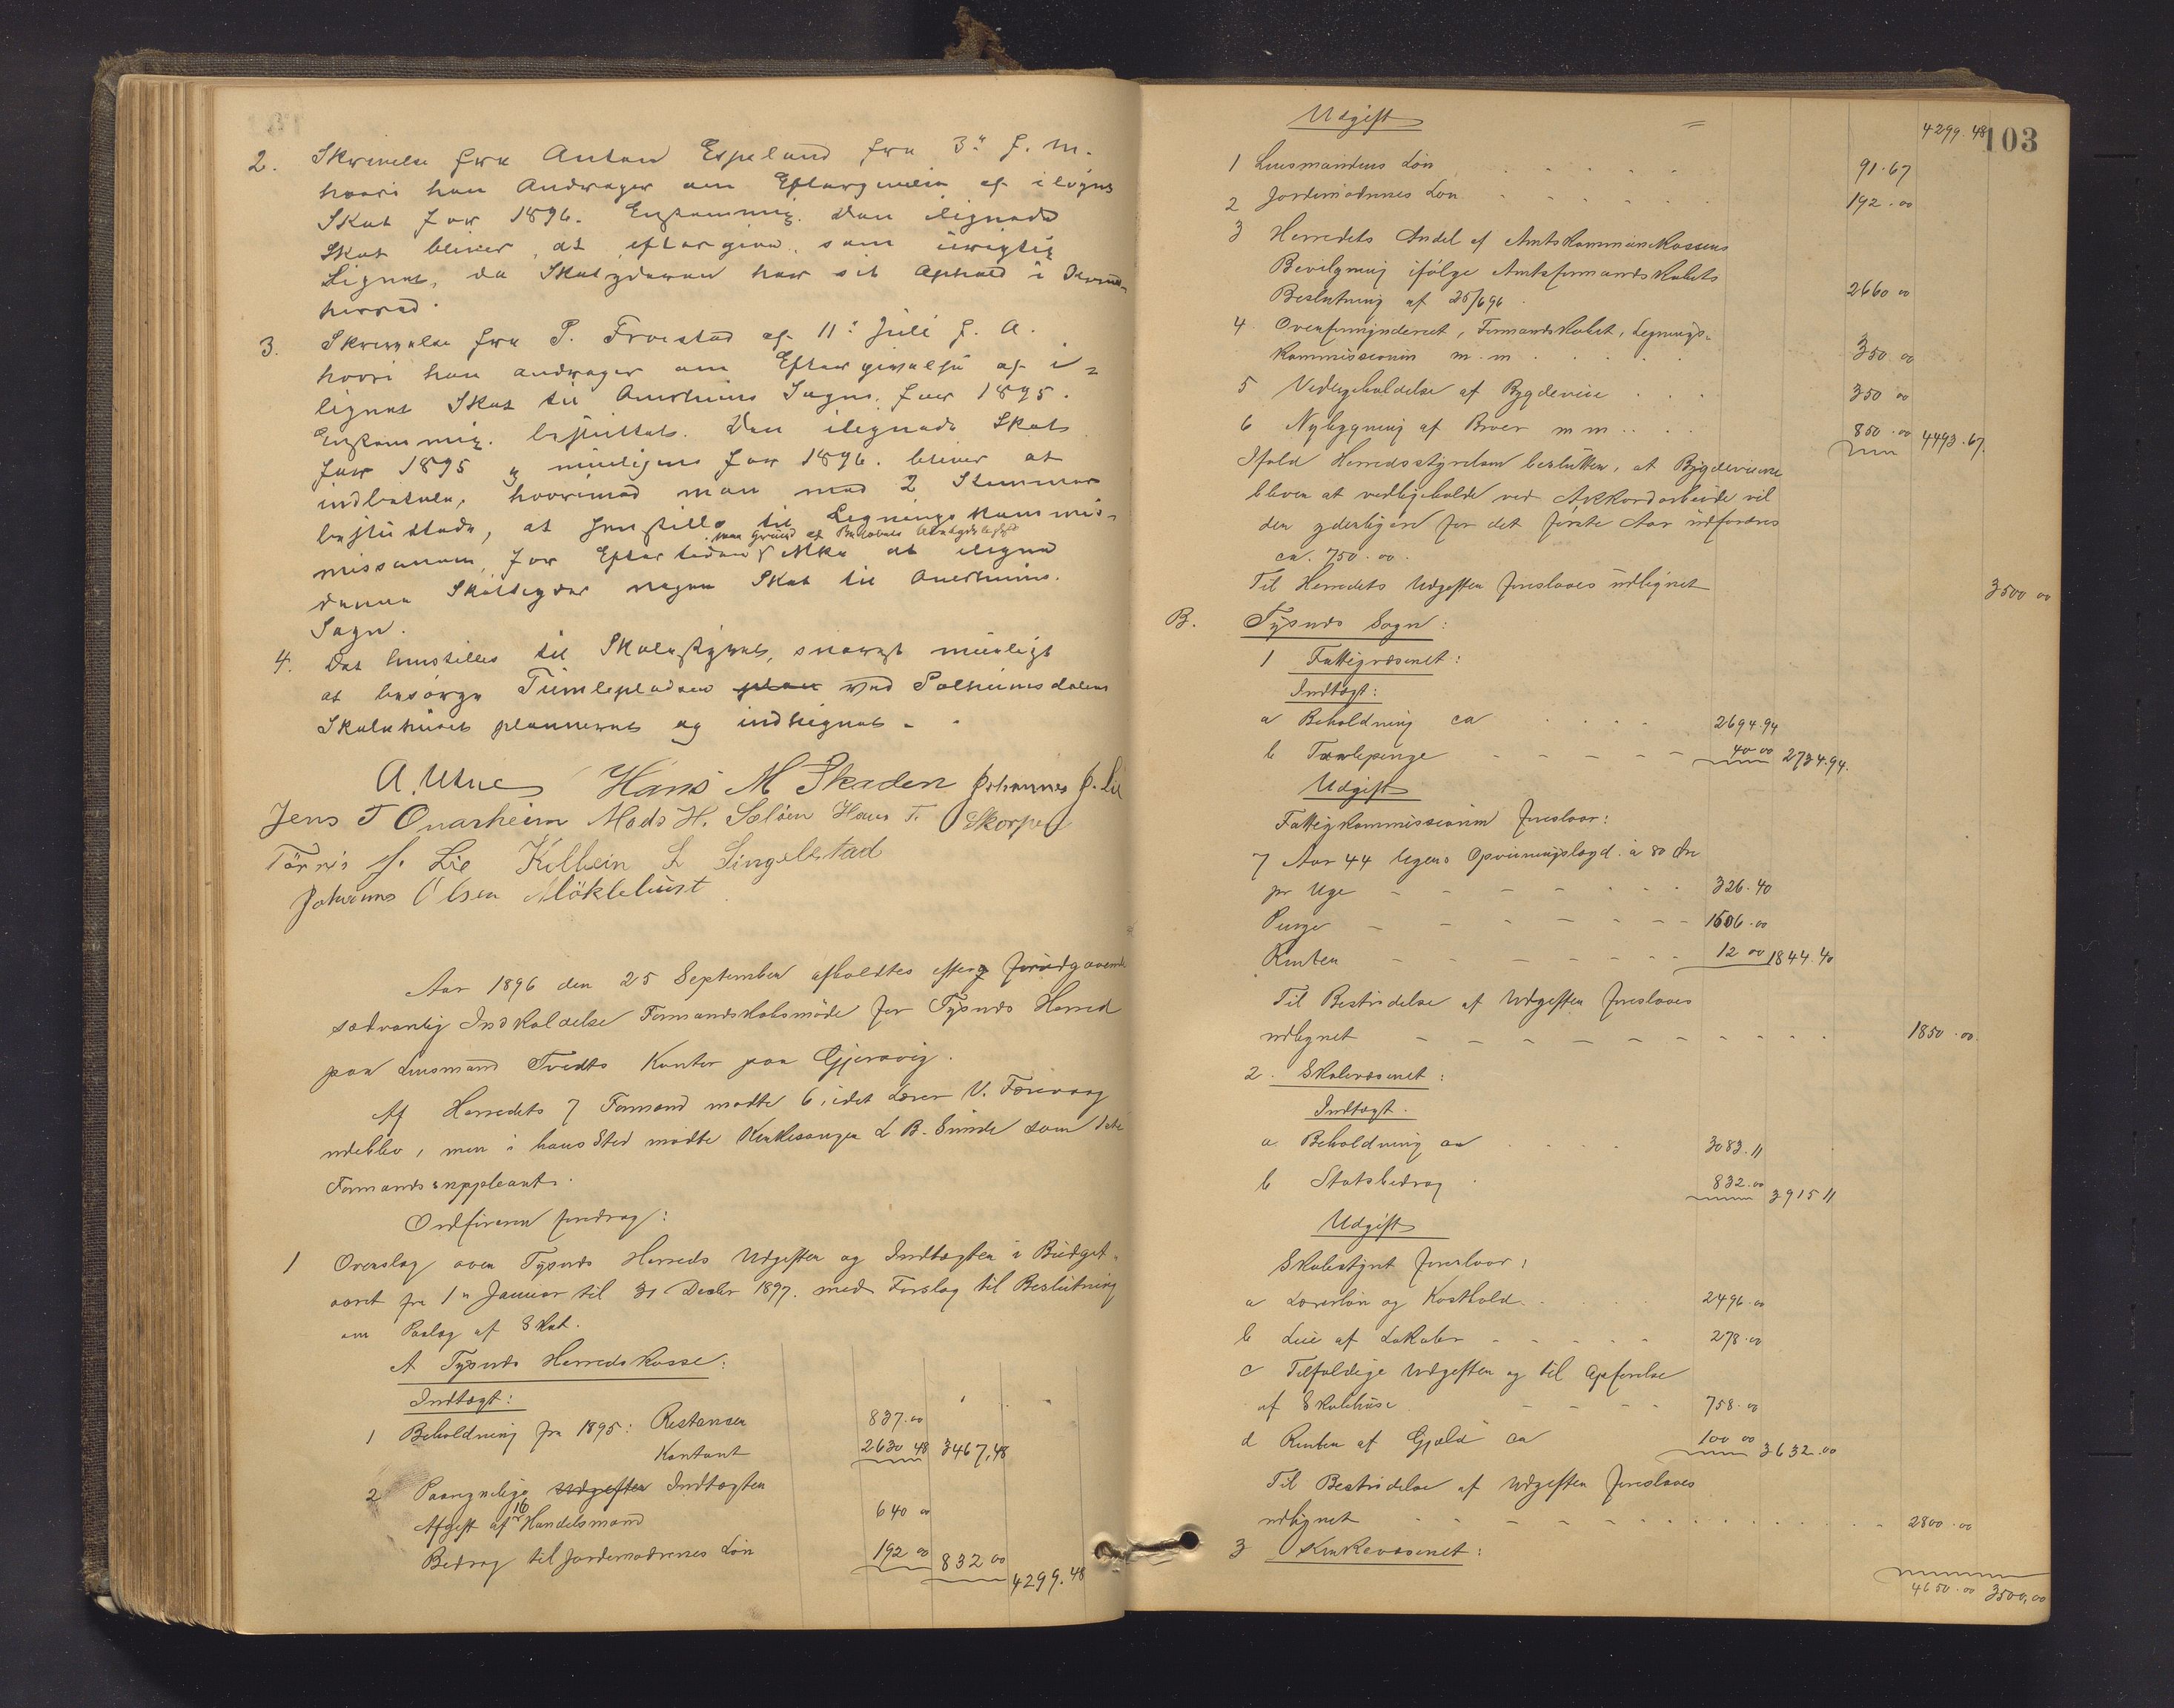 2. Skrivelse fra Anton Espeland fra 3die f. m.
hvori han andrager om Eftergivelse af ilignet
Skat for 1896. Enstemmig. Den ilignede
Skat bliver at eftergive, som urigtig
Lignet, da Skatyderen har sit Ophold i Kvind-
herred.
3. Skrivelse fra P. Frøistad af 11te Juli f. A.
hvori han andrager om Eftergivelse af i-
lignet Skat til Onarheims Sogn for 1895.
Enstemmig besluttet. Den ilignede Skat
for 1895 og muligens for 1896 bliver at
indbetale, hvorimod man med 2 Stemmer
besluttede, at henstille til Ligningskommis-
missionen, for Eftertiden paa Grund af ikke at iligne
denne Skatteyder nogen Skat til Onarheims
Sogn.
4. Det henstilles til Skolestyret, snarest muligt
at besørge Tumlepladsen plan ved Solheimsdalens
Skolehuset planneret og indhegnet.
A. Utne Hans M Skaden Johannes J. Li
Jens T Onarheim Mads H. Sæløen Hans T. Skorpen
Tørris J. Lie Kolbein L Singelstad
Johannes Olsen Møklebust
Aar 1896 den 25 September afholdtes efter forudgaaende
sædvanlig Indkaldelse Formandskabsmøde for Tysnæs Herred
paa Lensmand Tvedts Kontor paa Gjersvig.
Af Herredets 7 Formænd mødte 6, idet Lærer V. Færevaag
udeblev, men i hans Sted mødte Kirkesanger L B. Sunde som 1ste
Formandssuppleant.
Ordføreren foredrog:
1 Overslag over Tysnæs Herreds Udgifter og Indtægter i Budget-
aaret fra 1te Januar til 31 Decbr 1897. med Forslag til Beslutning
om Paalæg af Skat.
A Tysnæs Herredskasse:
Indtægt:
1 Beholdning fra 1895: Restancer 837.00
Kontant 2630 48 3467,48
2 Paaregnelige Udgifter Indtægter
Afgift af 16 Handelsmænd 640 00
Bidrag til Jordemødrenes Løn 192 00 832 00 4299.48
103
Udgift 4299.48
1 Lensmandens Løn 91.67
2 Jordemødrenes Løn 192.00
3 Herredets Andel af Amtskommunekassens
Bevilgning ifølge Amtsformandskabets
Beslutning af 25/6 96 2660 00
4 Overformynderiet, Formandskabet, Lignings-
kommissionen m.m 350 00
5 Vedligeholdelse af Bygdeveie 350 00
6 Nybygning af Broer m m 850.00 4493.67
Ifald Herredsstyrelsen beslutter, at Bygdeveiene
bliver at vedligeholde ved Akkordarbeide vil
der yderligere for det første Aar udfordres
ca. 750.00.
Til Herredets Udgifter foreslaaes udlignet 3500 00
B. Tysnæs Sogn:
1 Fattigvæsenet:
Indtægt:
a Beholdning ca 2694.94
b Tavlepenge 40.00 2734.94.
Udgift
Fattigkommissionen foreslaar:
7 Aar 44 Ugers Opviisningslægd. à 80 Øre
pr Uge 326.40
Penge 1506.00
Renter 12 00 1844.40
Til Bestridelse af Udgifter foreslaaes
udlignet 1850.00.
2. Skolevæsenet:
Indtægt.
a Beholdning ca 3083.11
b Statsbidrag 832.00 3915 11
Udgift
Skolestyret foreslaar:
a Lærerløn og Kosthold 2496.00
b Leie af Lokaler 278.00
c Tilfældige Udgifter og til Opførelse
af Skolehuse 758.00
d Renter af Gjæld ca 100 00 3632.00
Til Bestridelse af Udgifter foreslaaes
udlignet 2800.00
3 Kirkevæsenet:
4650.00 3500,00